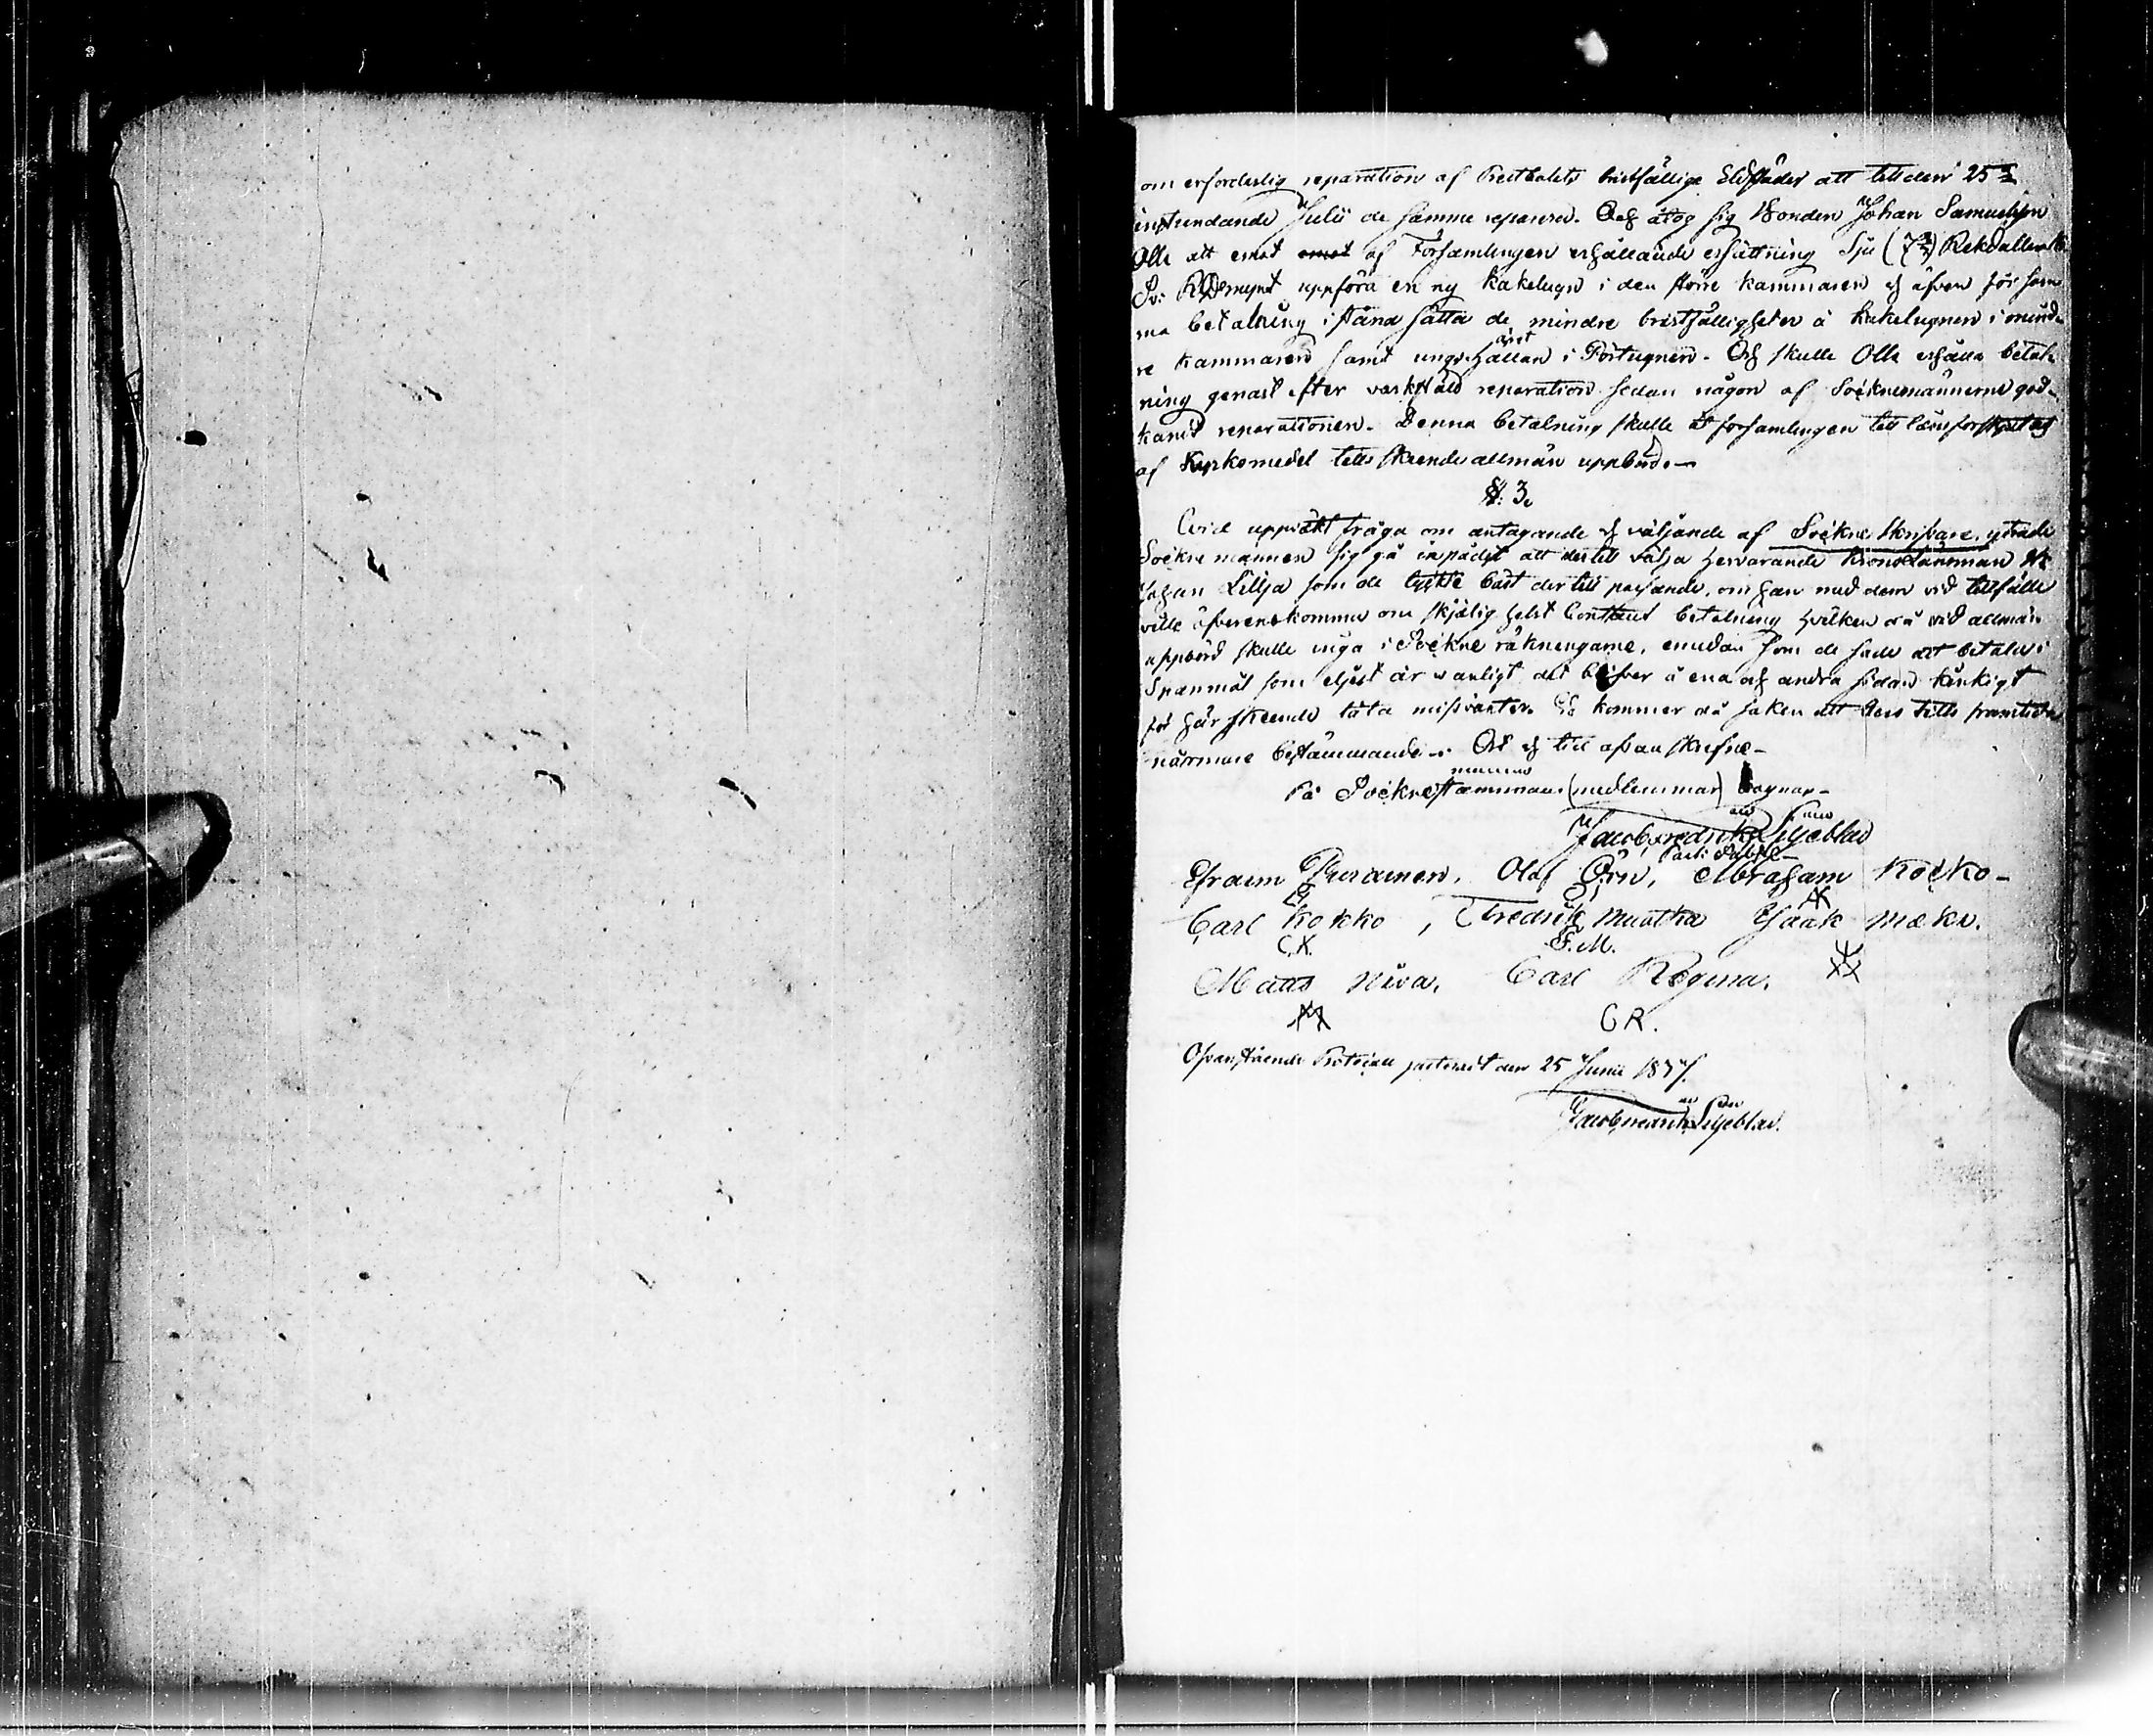 om erforderlig reparation af Prestbolets bristfällige Eldstäder att till den 25
instundande Julii de samme reparera. Och åtog sig Bonden Johan Samuelsson
Olli att emot emot af Församlingen erhållande ersättning Sju (7) Riksdaller
Sv: RDsmynt uppföra en ny kakelugn i den större kammaren och äfven för sam
ma betalning i stånd sätta de mindre bristfälligheter å kakelugnen i mind-
re kammaren samt ungshällan i . Och skulle Olli erhålla betal-
ning genast efter värkstäld reparation sedan någon af Socknemännerne god-
känt reparationen. Denna betalning skulle åt församlingen till låns
af Kyrkomedel tills skeende allmän uppbörd.—
§: 3.
Wid uppväkt fråga om antagande och väljande af Sockne Skrifvare, yttrade
Sockne mannen sig på att dertill välja hervarande Krono Länsman
Johan Lillja som de tyckte bäst der till passande, om han med dem vid tillfälle
ville öfverenskomma om skjälig helst Contant betalning hvilken då vid allmän
uppbörd skulle ingå i Sockne räkningarne, emedan som de sade att betala i
Spanmål som eljest är vanligt det blifver å ena och andra sidan kinkigt
för här skeende täta missväxter. Så kommer då saken att bero tills framtida
närmare bestämmande.— och till ofvanskrefne—
På Sockne mannens (medlemmar) vägnar—
Jacob Fredrik Liljeblad
Efraim . Olof Örn, Abraham Kokko—
Carl Kokko, Fredrik Muotka Isaak Mæki.
C.K. F.M.
Matts Niva. Carl Rogina.
C R.
Ofvanstående Protocoll justerat den 25 Junii 1837.
Jacob Fredrik Liljeblad.